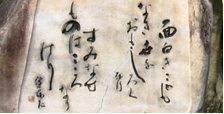 面白きことも
なき世を
おもしろく
すみなす
ものはこころ
なり
けり